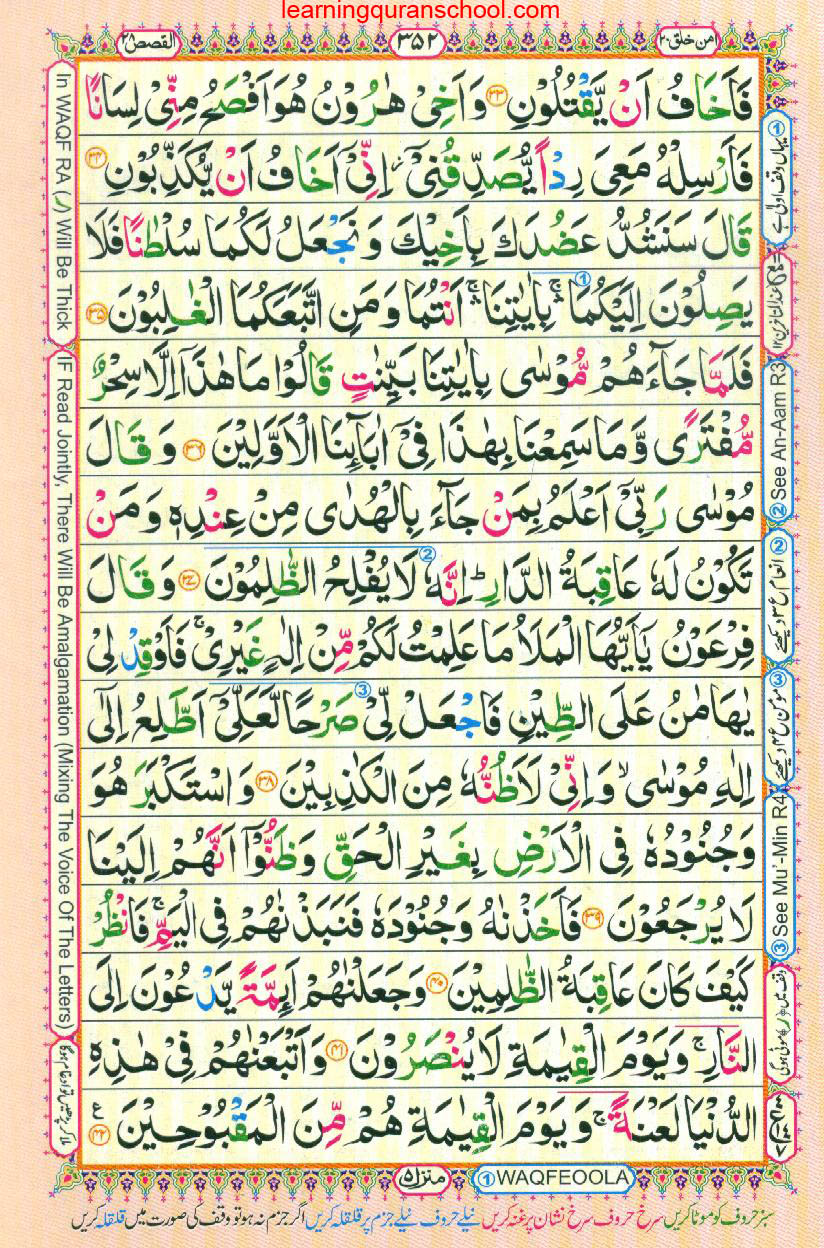 learningquranschool.com
امن خلق ۲۰
۳۵۲
القصص ۲۸
فَاَخَافُ اَنْ يَّقْتُلُوْنِ ۳۳ وَاَخِىْ هٰرُوْنُ هُوَ اَفْصَحُ مِنِّىْ لِسَانًا
فَاَرْسِلْهُ مَعِىَ رِدْاً يُّصَدِّقُنِىْۤ ز اِنِّىْۤ اَخَافُ اَنْ يُّكَذِّبُوْنِ ۳۴
قَالَ سَنَشُدُّ عَضُدَكَ بِاَخِيْكَ وَنَجْعَلُ لَكُمَا سُلْطٰنًا فَلَا
يَصِلُوْنَ اِلَيْكُمَا ۚ ۛ بِاٰيٰتِنَا ۚ ۛ اَنْتُمَا وَمَنِ اتَّبَعَكُمَا الْغٰلِبُوْنَ ۳۵
فَلَمَّا جَآءَهُمْ مُّوْسٰى بِاٰيٰتِنَا بَيِّنٰتٍ قَالُوْا مَا هٰذَاۤ اِلَّا سِحْرٌ
مُّفْتَرًى وَّمَا سَمِعْنَا بِهٰذَا فِىْۤ اٰبَآئِنَا الْاَوَّلِيْنَ ۳۶ وَقَالَ
مُوْسٰى رَبِّىْۤ اَعْلَمُ بِمَنْ جَآءَ بِالْهُدٰى مِنْ عِنْدِهٖ وَمَنْ
تَكُوْنُ لَهٗ عَاقِبَةُ الدَّارِ ؕ اِنَّهٗ لَا يُفْلِحُ الظّٰلِمُوْنَ ۳۷ وَقَالَ
فِرْعَوْنُ يٰۤاَيُّهَا الْمَلَاُ مَا عَلِمْتُ لَكُمْ مِّنْ اِلٰهٍ غَيْرِىْ ۚ فَاَوْقِدْ لِىْ
يٰهَامٰنُ عَلَى الطِّيْنِ فَاجْعَلْ لِّىْ صَرْحًا لَّعَلِّىْۤ اَطَّلِعُ اِلٰٓى
اِلٰهِ مُوْسٰى ۙ وَاِنِّىْ لَاَظُنُّهٗ مِنَ الْكٰذِبِيْنَ ۳۸ وَاسْتَكْبَرَ هُوَ
وَجُنُوْدُهٗ فِى الْاَرْضِ بِغَيْرِ الْحَقِّ وَظَنُّوْۤا اَنَّهُمْ اِلَيْنَا
لَا يُرْجَعُوْنَ ۳۹ فَاَخَذْنٰهُ وَجُنُوْدَهٗ فَنَبَذْنٰهُمْ فِى الْيَمِّ ۚ فَانْظُرْ
كَيْفَ كَانَ عَاقِبَةُ الظّٰلِمِيْنَ ۴۰ وَجَعَلْنٰهُمْ اَئِمَّةً يَّدْعُوْنَ اِلَى
النَّارِ ۚ وَيَوْمَ الْقِيٰمَةِ لَا يُنْصَرُوْنَ ۴۱ وَاَتْبَعْنٰهُمْ فِىْ هٰذِهِ
الدُّنْيَا لَعْنَةً ۚ وَيَوْمَ الْقِيٰمَةِ هُمْ مِّنَ الْمَقْبُوْحِيْنَ ۴۲ ع
① یہاں وقف اولیٰ ہے
② See An-Aam R3
② انعام ع ۳ دیکھئے
③ مؤمن ع ۴ دیکھئے
③ See Mu'-Min R4
وقف میں (ر) موٹی ہوگی
In WAQF RA (ر) Will Be Thick
IF Read Jointly, There Will Be Amalgamation (Mixing The Voice Of The Letters)
ملا کر پڑھیں تو ادغام ہوگا
منزل ۵
① WAQFEOOLA
سبز حروف کو موٹا کریں سرخ حروف سرخ نشان پر غنہ کریں نیلے حروف نیلے جزم پر قلقلہ کریں اگر جزم نہ ہو تو وقف کی صورت میں قلقلہ کریں